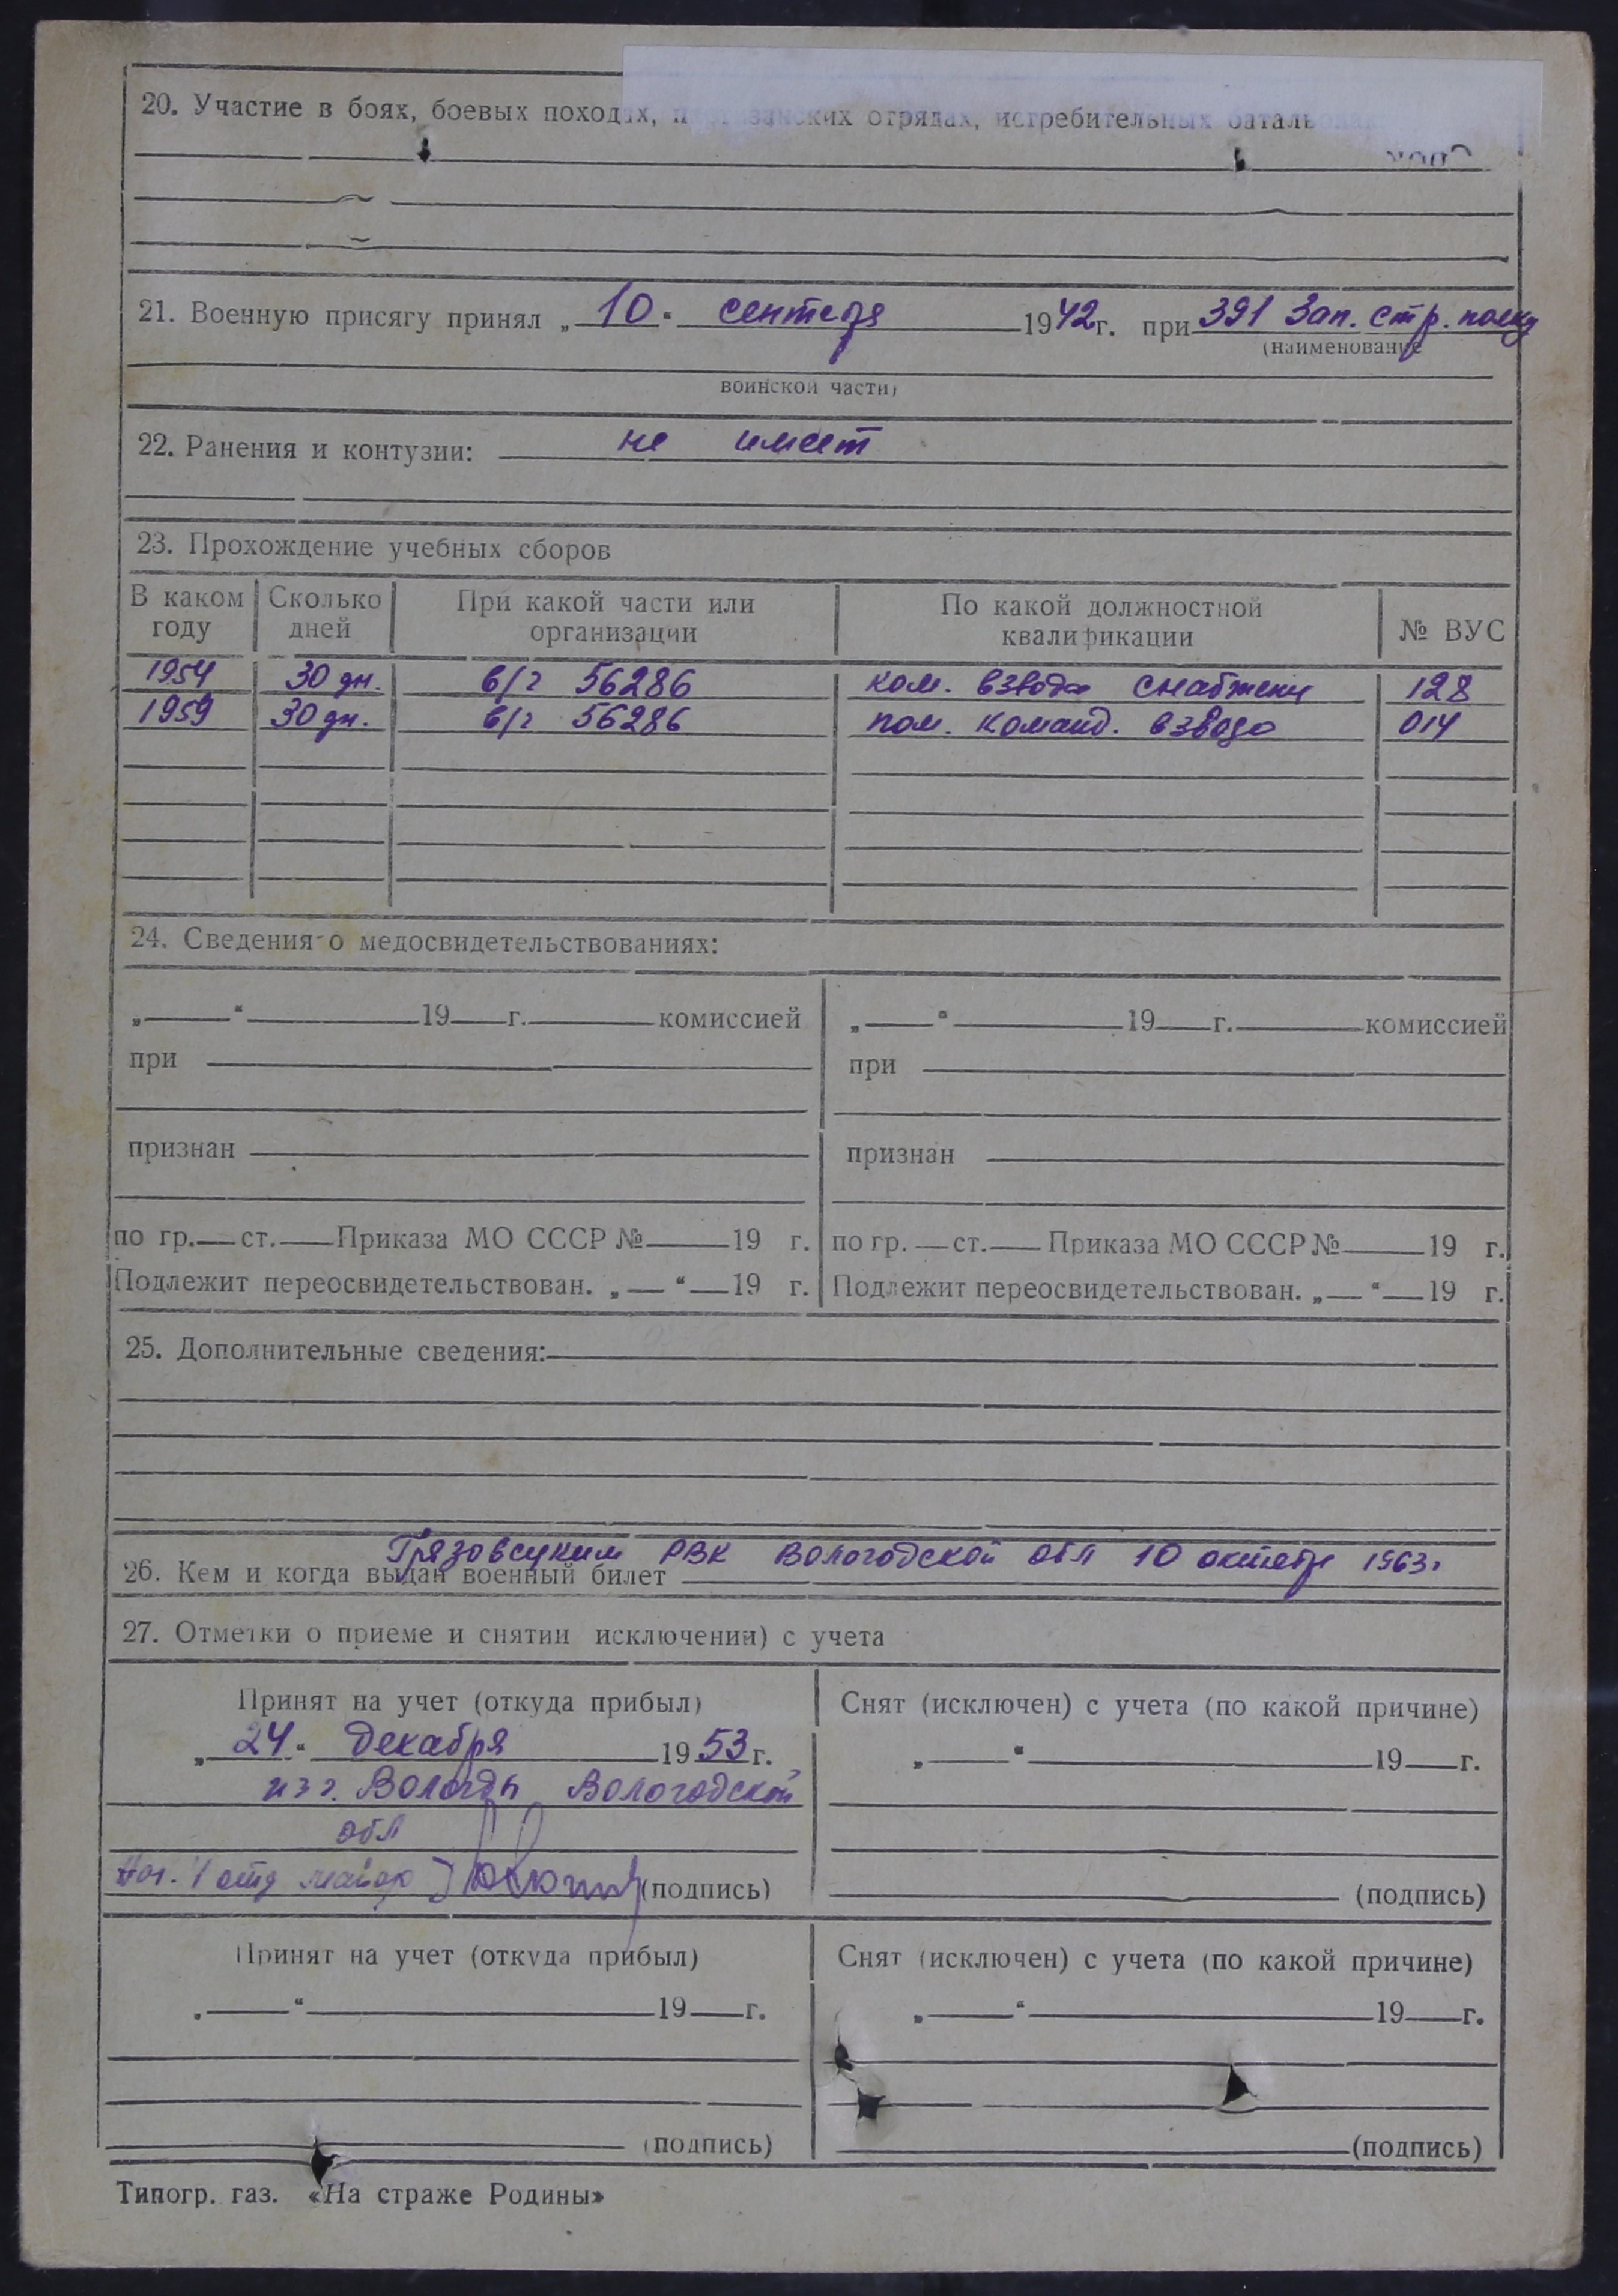 20. Участие в боях, боевых походах, партизанских отрядах, истребительных батальонах
21. Военную присягу принял „10“ сентября 1942 г. при 391 Зап. стр. полку
(наименование
воинской части)
22. Ранения и контузии: не имеет
23. Прохождение учебных сборов
В каком году | Сколько дней | При какой части или организации | По какой должностной квалификации | № ВУС
1954 | 30 дн. | в/ч 56286 | ком. взвода снабжени | 128
1959 | 30 дн. | в/ч 56286 | пом. команд. взвода | 014
24. Сведения о медосвидетельствованиях:
„ “ 19 г. комиссией | „ “ 19 г. комиссией
при | при
признан | признан
по гр. ст. Приказа МО СССР № 19 г. | по гр. ст. Приказа МО СССР № 19 г.
Подлежит переосвидетельствован. „ “ 19 г. | Подлежит переосвидетельствован. „ “ 19 г.
25. Дополнительные сведения:
Грязовецким РВК Вологодской обл 10 октября 1963г
26. Кем и когда выдан военный билет
27. Отметки о приеме и снятии исключении) с учета
Принят на учет (откуда прибыл) | Снят (исключен) с учета (по какой причине)
„24“ декабря 1953 г. | „ “ 19 г.
из г. Вологды Вологодской
обл
Нач. 1 отд майор (подпись) | (подпись)
Принят на учет (откуда прибыл) | Снят (исключен) с учета (по какой причине)
„ “ 19 г. | „ “ 19 г.
(подпись) | (подпись)
Типогр. газ. «На страже Родины»